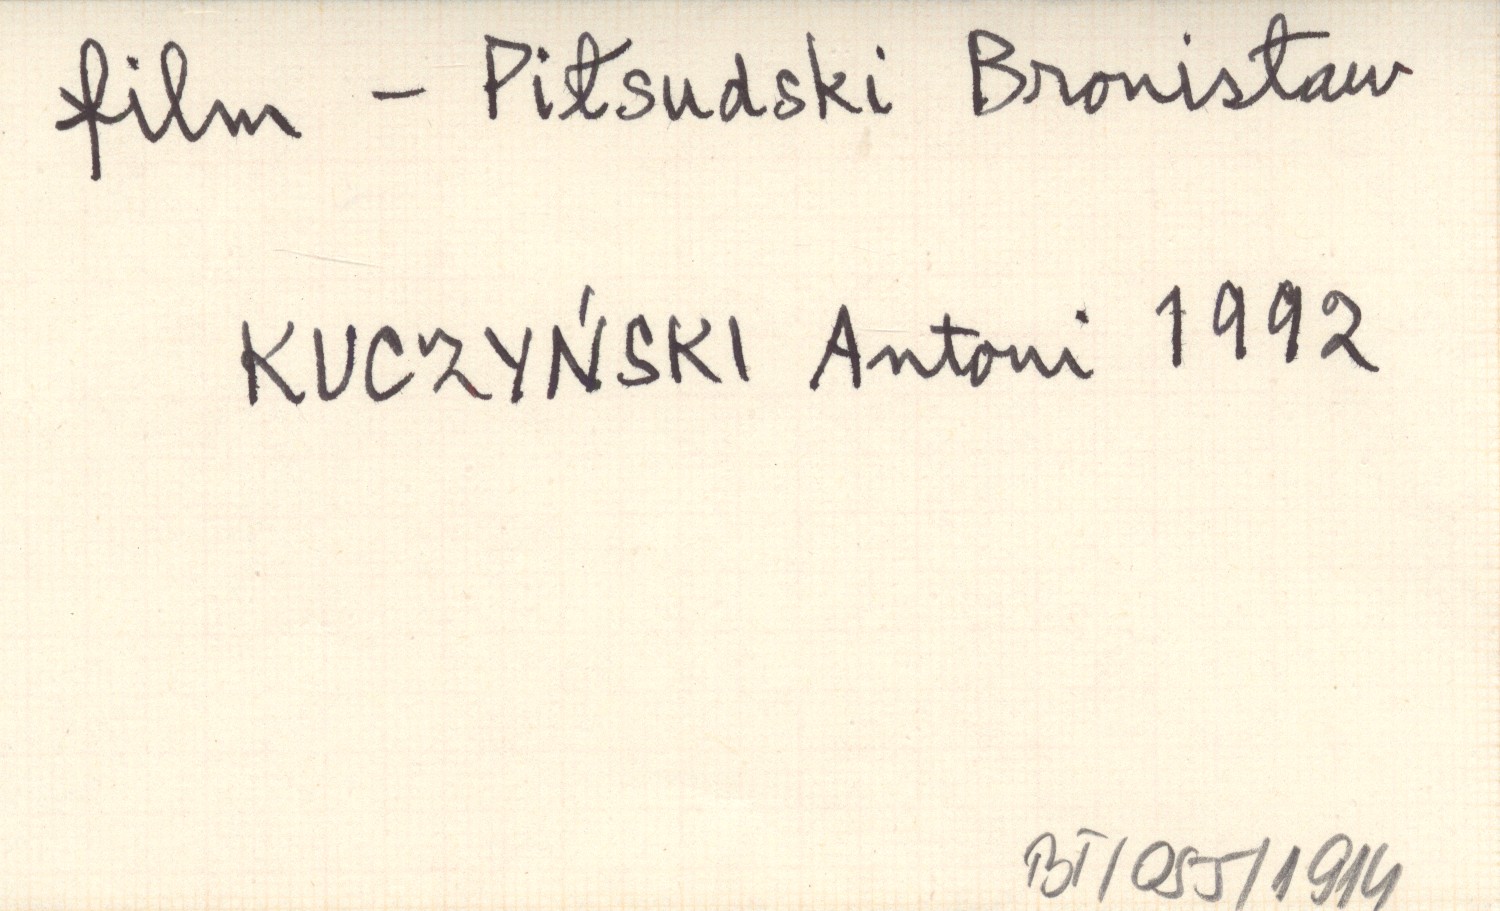 film - Piłsudski Bronisław
KUCZYŃSKI Antoni 1992
BT/OSJ/1914